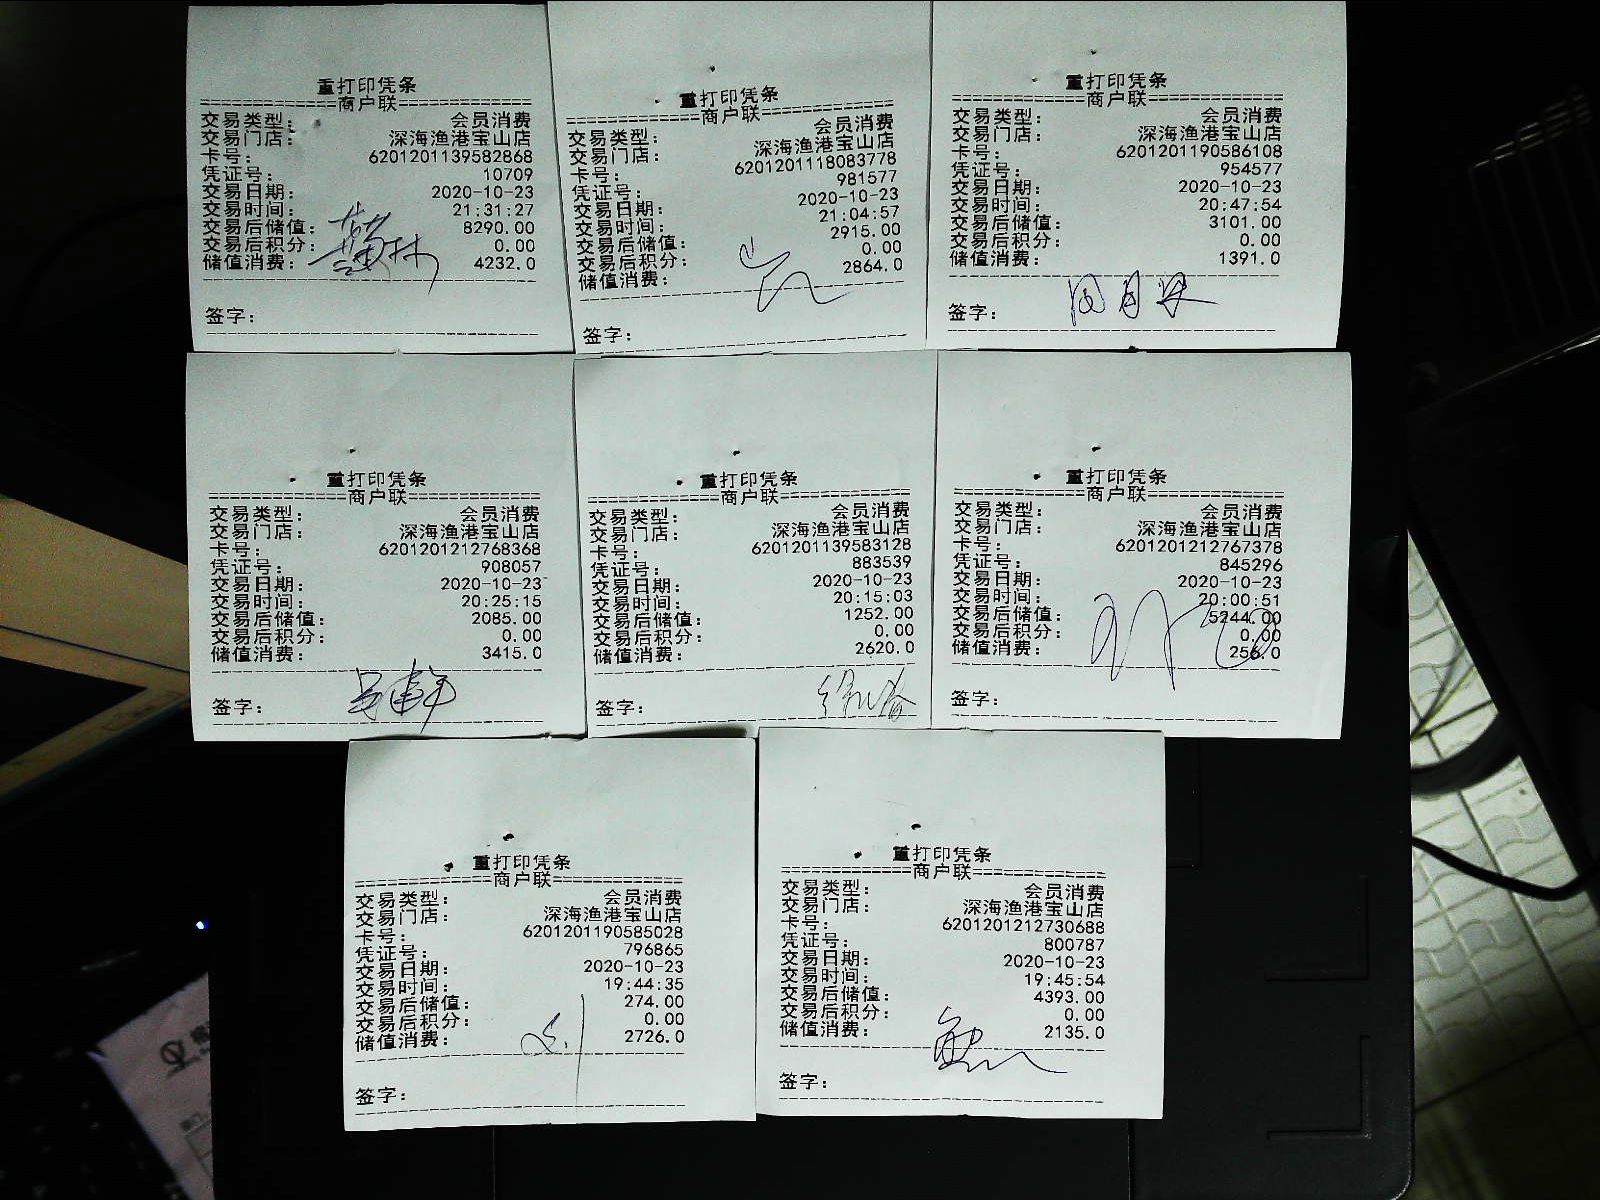 重打印凭条
============商户联============
交易类型: 会员消费
交易门店: 深海渔港宝山店
卡号: 6201201139582868
凭证号: 10709
交易日期: 2020-10-23
交易时间: 21:31:27
交易后储值: 8290.00
交易后积分: 0.00
储值消费: 4232.0
签字:
重打印凭条
============商户联============
交易类型: 会员消费
交易门店: 深海渔港宝山店
卡号: 6201201118083778
凭证号: 981577
交易日期: 2020-10-23
交易时间: 21:04:57
交易后储值: 2915.00
交易后积分: 0.00
储值消费: 2864.0
签字:
重打印凭条
============商户联============
交易类型: 会员消费
交易门店: 深海渔港宝山店
卡号: 6201201190586108
凭证号: 954577
交易日期: 2020-10-23
交易时间: 20:47:54
交易后储值: 3101.00
交易后积分: 0.00
储值消费: 1391.0
签字:
重打印凭条
============商户联============
交易类型: 会员消费
交易门店: 深海渔港宝山店
卡号: 6201201212768368
凭证号: 908057
交易日期: 2020-10-23
交易时间: 20:25:15
交易后储值: 2085.00
交易后积分: 0.00
储值消费: 3415.0
签字:
重打印凭条
============商户联============
交易类型: 会员消费
交易门店: 深海渔港宝山店
卡号: 6201201139583128
凭证号: 883539
交易日期: 2020-10-23
交易时间: 20:15:03
交易后储值: 1252.00
交易后积分: 0.00
储值消费: 2620.0
签字:
重打印凭条
============商户联============
交易类型: 会员消费
交易门店: 深海渔港宝山店
卡号: 6201201212767378
凭证号: 845296
交易日期: 2020-10-23
交易时间: 20:00:51
交易后储值: 5244.00
交易后积分: 0.00
储值消费: 256.0
签字:
重打印凭条
============商户联============
交易类型: 会员消费
交易门店: 深海渔港宝山店
卡号: 6201201190585028
凭证号: 796865
交易日期: 2020-10-23
交易时间: 19:44:35
交易后储值: 274.00
交易后积分: 0.00
储值消费: 2726.0
签字:
重打印凭条
============商户联============
交易类型: 会员消费
交易门店: 深海渔港宝山店
卡号: 6201201212730688
凭证号: 800787
交易日期: 2020-10-23
交易时间: 19:45:54
交易后储值: 4393.00
交易后积分: 0.00
储值消费: 2135.0
签字: